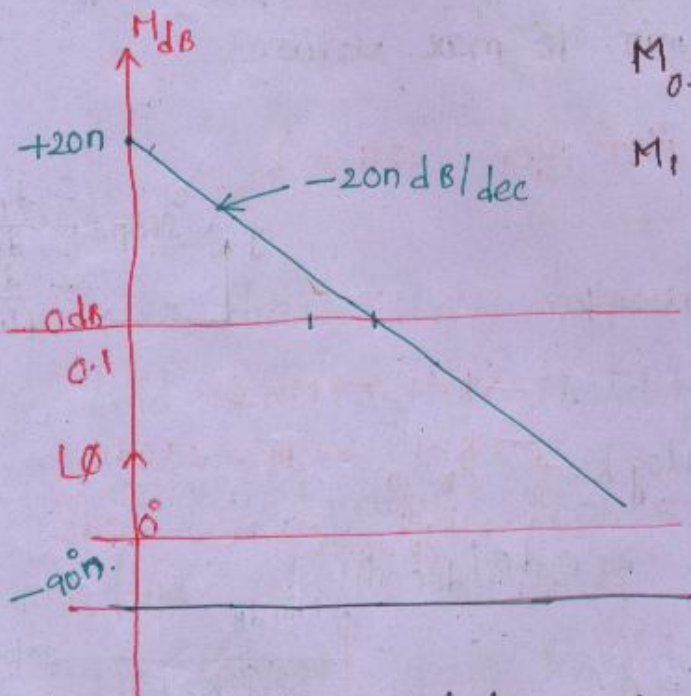 M dB
M 0.
+20n
M1
-20n dB/dec
0dB
0.1
L∅
0°
-90°n.